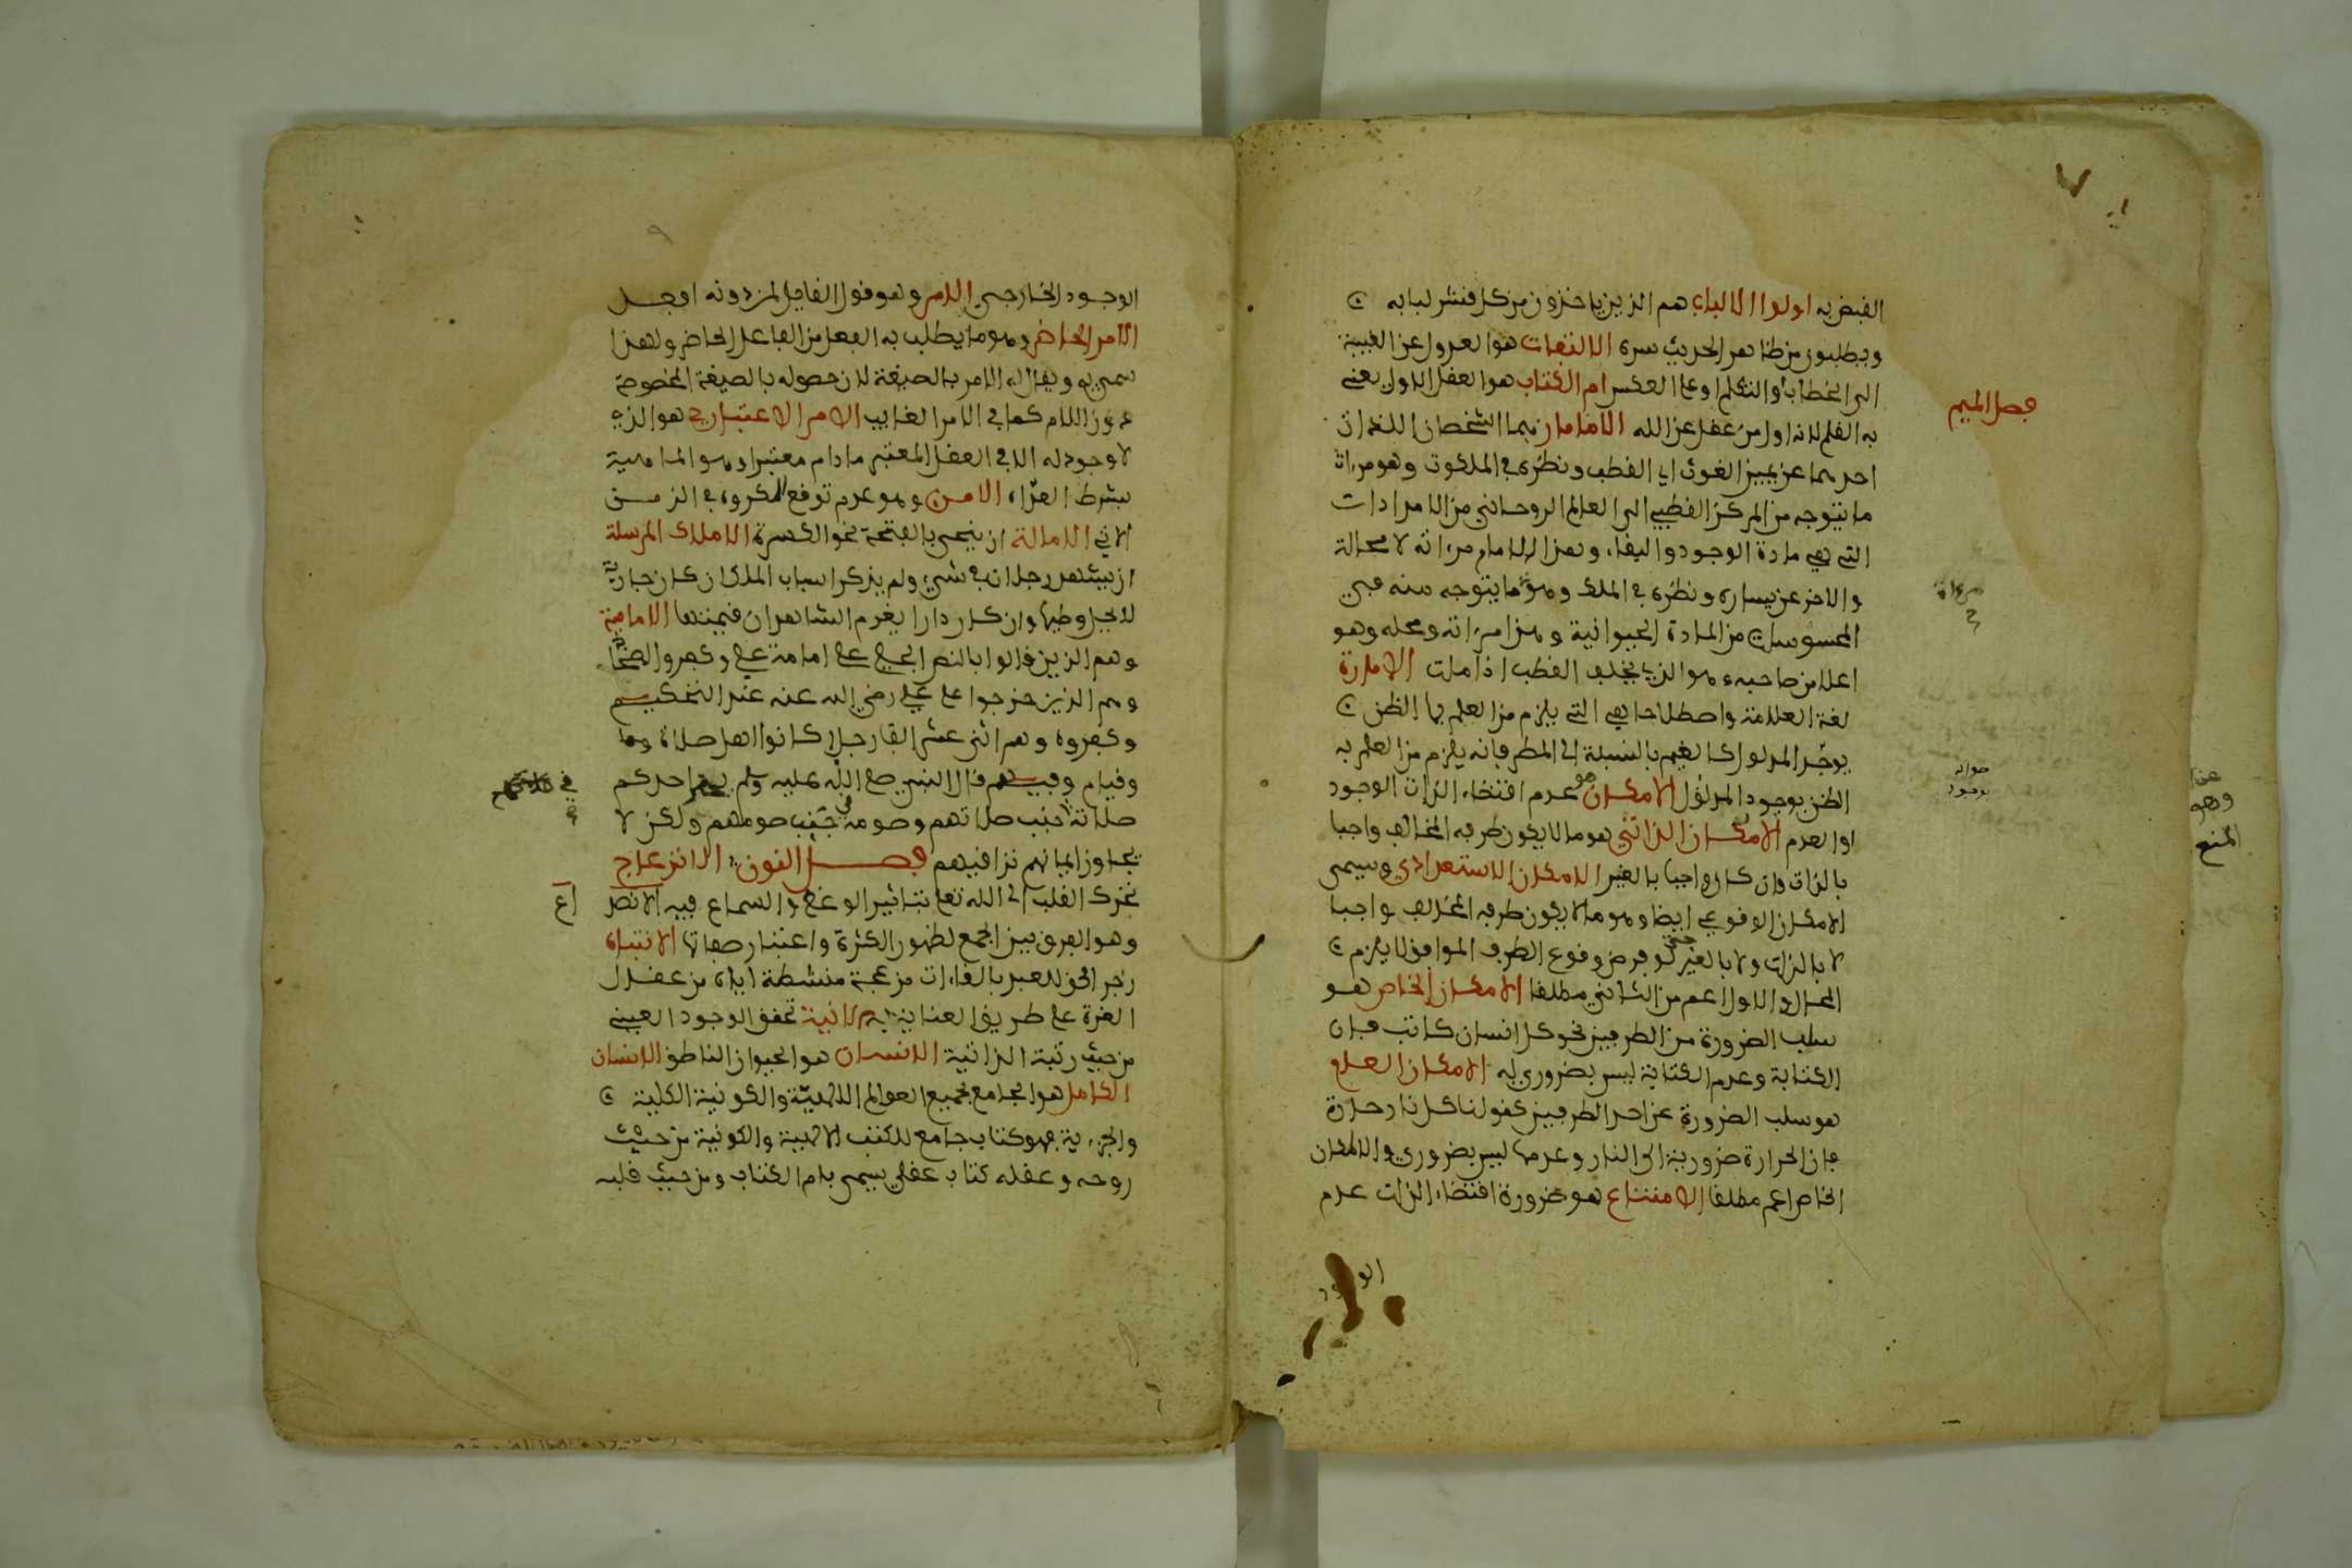 القبض به اولوا الالباب هم الذين ياخذون من كل قشر لبابه
ويطلبون من ظاهر الحديث سره الالتفات هو العدول عن الغيبة
الى الخطاب او التكلم او على العكس ام الكتاب هو العقل الاول يعنى
فصل الميم
به القلم لانه اول من عقل عن الله الامامان هما الشخصان اللذان
احدهما عن يمين الغوث اى القطب ونظره في الملكوت وهو مرءاة
ما يتوجه من المركز القطبي الى العالم الروحاني من الامدادات
التي هي مادة الوجود والبقاء وهذا الامام مرءاته لا محالة
والاخر عن يساره ونظره في الملك وهو ما يتوجه منه في
مرءاة
المحسوسات من المادة الحيوانية وهذا مرءاته ومحله وهو
اعلا من صاحبه وهو الذي يخلف القطب اذا مات الامارة
لغة العلامة واصطلاحا هي التي يلزم من العلم بها الظن
يوجد المدلول كالغيم بالنسبة الى المطر فانه يلزم من العلم به
الظن بوجود المدلول الامكان هو عدم اقتضاء الذات الوجود
صوابه بوجود
او العدم الامكان الذاتي هو ما لا يكون طرفه المخالف واجبا
بالذات وان كان واجبا بالغير الامكان الاستعدادي ويسمى
الامكان الوقوعي ايضا وهو ما لا يكون طرفه المخالف واجبا
لا بالذات ولا بالغير حتى لو فرض وقوع الطرف الموافق لا يلزم
المحال والاول اعم من الثاني مطلقا الامكان الخاص هو
سلب الضرورة من الطرفين نحو كل انسان كاتب فان
الكتابة وعدم الكتابة ليس بضروري له الامكان العام
هو سلب الضرورة عن احد الطرفين كقولنا كل نار حارة
فان الحرارة ضرورية الى النار وعدمها ليس بضروري والامكان
الخاص اعم مطلقا الامتناع هو ضرورة اقتضاء الذات عدم
الوجود
الوجود الخارجي الامر وهو قول القايل لمن دونه افعل
الامر الحاضر وهو ما يطلب به الفعل من الفاعل الحاضر ولهذا
سمي به ويقال له الامر بالصيغة لان حصوله بالصيغة المخصوصة
دون اللام كما في الامر الغايب الامر الاعتباري هو الذي
لا وجود له الا في العقل المعتبر ما دام معتبرا وهو الماهية
بشرط العراء الامن وهو عدم توقع المكروه في الزمن
الاتي الامالة ان ينحى بالفتحة نحو الكسرة الاملاك المرسلة
ان يشهد رجلان في شيء ولم يذكرا سباب الملك ان كان جارية
لا يحل وطيها وان كان دارا يغرم الشاهدان قيمتها الامامية
وهم الذين قالوا بالنص الجلي على امامة علي وكفروا الصحابة
وهم الذين خرجوا على علي رضي الله عنه عند التحكيم
وكفروه وهم اثنى عشر الف رجل كانوا اهل صلاة
وقيام وفيهم قال النبي صلى الله عليه وسلم يحقر احدكم
صلاته في جنب صلاتهم وصومه في جنب صومهم ولكن لا
يجاوز ايمانهم تراقيهم فصل النون الانزعاج
تحرك القلب الى الله تعلى بتاثير الوعظ والسماع فيه الانصد
اع
وهو الفرق بين الجمع لظهور الكثرة واعتبار صفاتها الانتباه
زجر الحق للعبد بالقاءات مزعجة منشطة اياه من عقال
الغرة على طريق العناية به الانية تحقق الوجود العيني
من حيث رتبة الذاتية الانسان هو الحيوان الناطق الانسان
الكامل هو الجامع لجميع العوالم الالهية والكونية الكلية
والجزءية فهو كتاب جامع للكتب الالهية والكونية من حيث
روحه وعقله كتاب عقلي يسمى بام الكتاب ومن حيث قلبه